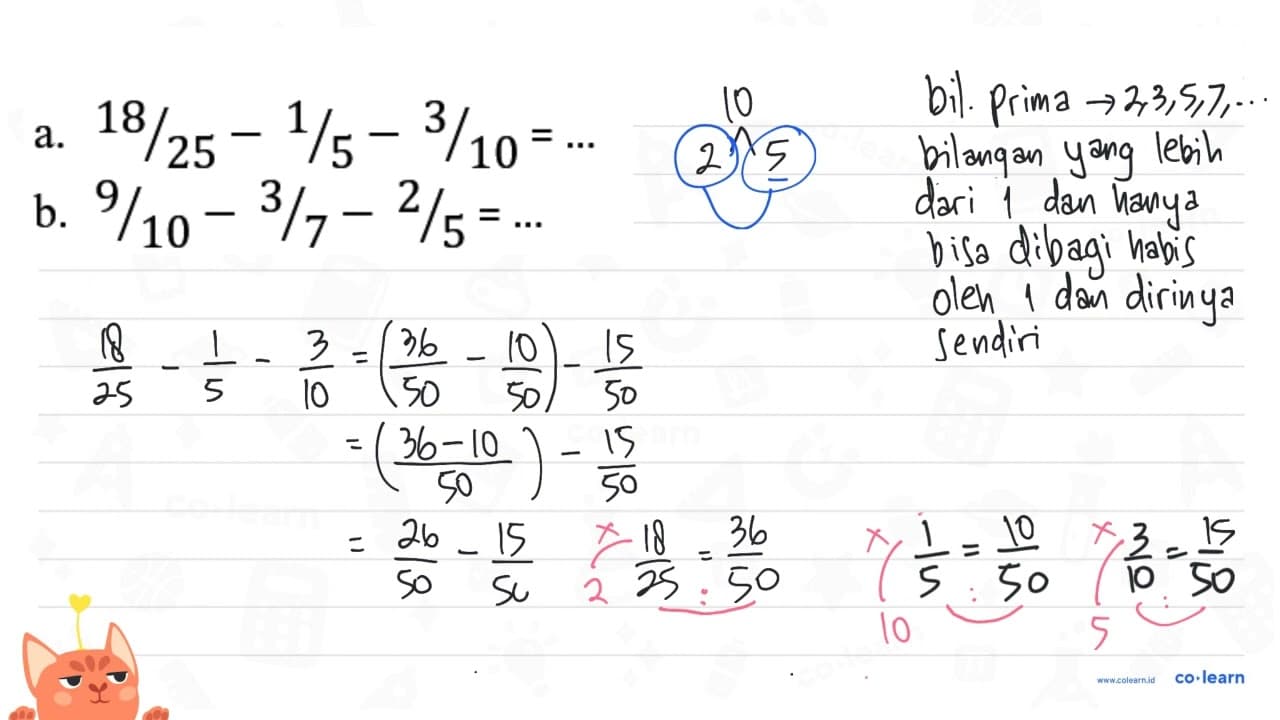 a. 18/25 − 1/5 − 3/10 = ...
b. 9/10 − 3/7 − 2/5 = ...
10
2 5
bil. prima → 2,3,5,7,...
bilangan yang lebih
dari 1 dan hanya
bisa dibagi habis
oleh 1 dan dirinya
sendiri
18/25 - 1/5 - 3/10 = (36/50 - 10/50) - 15/50
= (36-10/50) - 15/50
= 26/50 - 15/50
× 2 18/25 = 36/50 :
× 10 1/5 = 10/50 :
× 5 3/10 = 15/50 :
www.colearn.id co·learn